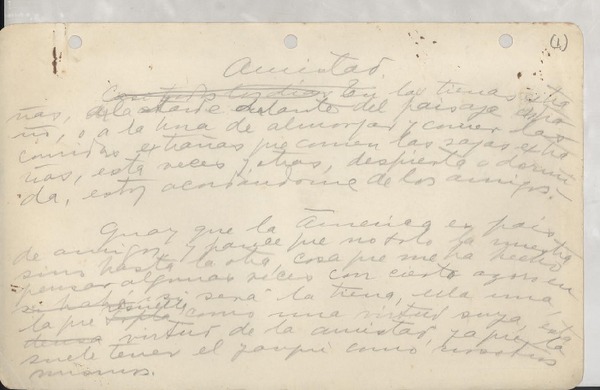 (1)
Amistad.
En las tierras extra
ñas, a la tarde delante del paisaje extra
ño, o a la hora de almorzar y comer las
comidas extrañas que comen las razas extra
ñas, esta veces y otras, despierta o dormi
da, estoy acordándome de los amigos.
Creay que la América es país
de amigos, y parece que no solo la nuestra
sino hasta la otra, cosa que me ha hecho
pensar algunas veces con cierto
si será la tierra, ella una,
la que resuella como una virtud suya, esta
densa virtud de la amistad, ya que la
suele tener el yanqui como nosotros
mismos.